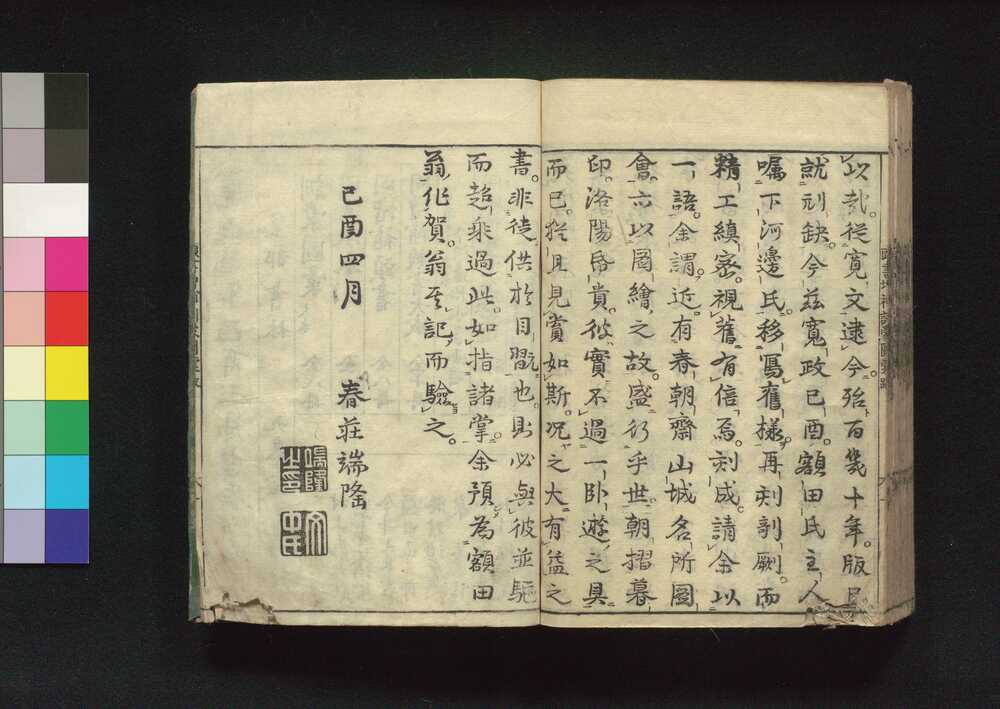 以哉從寛文逮今殆百幾十年版
就刓缺今茲寛政己酉額田氏主人
囑下河邊氏移寫舊様再刻剞劂而
精工縝密視舊有倍焉刻成請余以
一語余謂近有春朝齋山城名所圖
會亦以圖繪之故盛行乎世朝摺暮
印洛陽帋貴彼實不過一卧遊之具
而已然且見賞如斯况之大有益之
書非徒供於目翫也則必與彼並馳
而超乘過此如指諸掌余預為額田
翁作賀翁其記而驗之
己酉四月
春莊端隆
端隆之印
文中氏